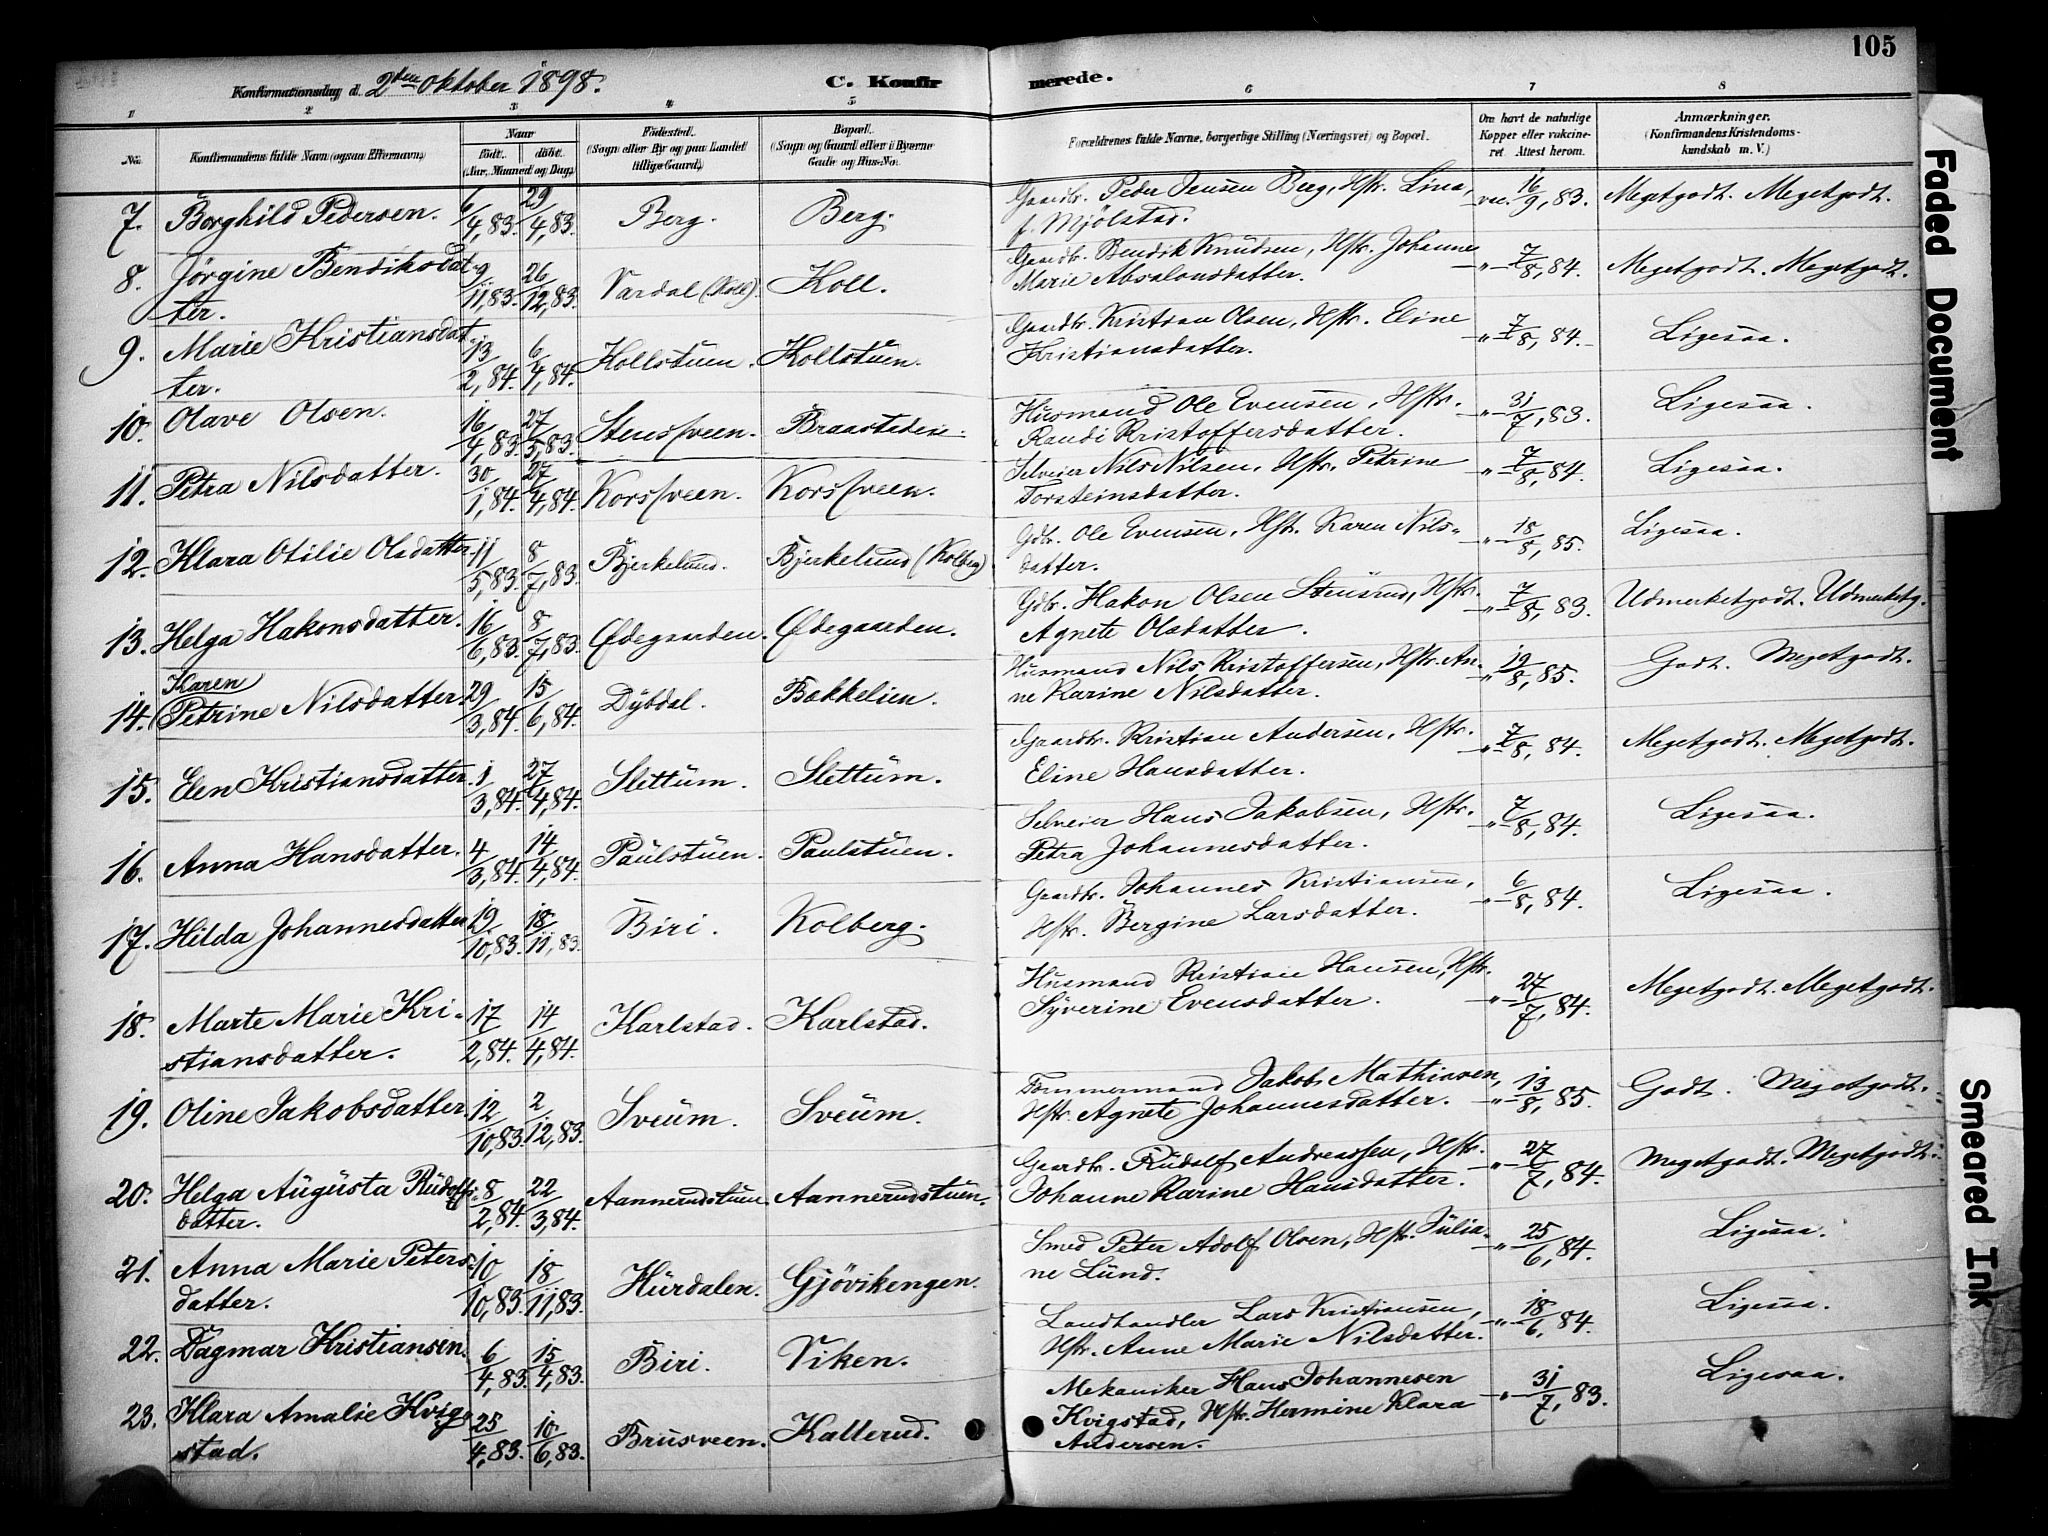 105
Konfirmationsdag d. 2den Oktober 1898. C. Konfirmerede.
1 2 3 4 5 6 7 8
No. Konfirmandens fulde Navn (ogsaa Efternavn). Naar født. døbt. (Aar, Maaned og Dag.) Fødested. (Sogn eller By og paa Landet tillige Gaard.) Bopæl. (Sogn og Gaard eller i Byerne Gade og Hus-No. Forældrenes fulde Navne, borgerlige Stilling (Næringsvei) og Bopæl. Om havt de naturlige Kopper eller vakcineret. Attest herom. Anmærkninger. (Konfirmandens Kristendomskundskab m. V.)
7. Borghild Pedersen. 6/4,83. 29/4,83. Berg. Berg. Gaardbr. Peder Jensen Berg, Hstr. Lina, f. Mjölstad. vac. 16/9,83. Megetgodt. Megetgodt.
8. Jörgine Bendiksdatter. 9/11,83. 26/12,83. Vardal (Koll). Koll. Gaardbr. Bendik Knudsen, Hstr. Johanne Marie Absalonsdatter. —"— 7/8,84. Megetgodt. Megetgodt.
9. Marie Kristiansdatter. 13/2,84. 6/4,84. Kollstuen. Kollstuen. Gaardbr. Kristian Olsen, Hstr. Eline Kristiansdatter. —"— 7/8,84. Ligesaa.
10. Olave Olsen. 16/4,83. 27/5,83. Stensveen. Braastadeie. Husmand Ole Evensen, Hstr. Randi Kristoffersdatter. —"— 31/7,83. Ligesaa.
11. Petra Nilsdatter. 30/1,84. 27/4,84. Korssveen. Korssveen. Selveier Nils Nilsen, Hstr. Petrine Torsteinsdatter. —"— 7/8,84. Ligesaa.
12. Klara Otilie Olsdatter. 11/5,83. 8/7,83. Bjerkelund. Bjerkelund (Kolberg) Gdbr. Ole Evensen, Hstr. Karen Nilsdatter. —"— 18/8,85. Ligesaa.
13. Helga Hakonsdatter. 16/6,83. 8/7,83. Ødegaarden. Ødegaarden. Gdbr. Hakon Olsen Stensrud, Hstr. Agnete Olsdatter. —"— 7/8,83. Udmerketgodt. Udmerketg.
14. Karen Petrine Nilsdatter. 29/3,84. 15/6,84. Dybdal. Bakkelien. Husmand Nils Kristoffersen, Hstr. Anne Karine Nilsdatter. —"— 19/8,85. Godt. Megetgodt.
15. Elen Kristiansdatter. 1/3,84. 27/4,84. Slettum. Slettum. Gaardbr. Kristian Andersen, Hstr. Eline Hansdatter. —"— 7/8,84. Megetgodt. Megetgodt.
16. Anna Hansdatter. 4/3,84. 14/4,84. Paulstuen. Paulstuen. Selveier Hans Jakobsen, Hstr. Petra Johannesdatter. —"— 7/8,84. Ligesaa.
17. Hilda Johannesdatter 19/10,83. 18/11,83. Biri. Kolberg. Gaardbr. Johannes Kristiansen, Hstr. Bergine Larsdatter. —"— 6/8,84. Ligesaa.
18. Marte Marie Kristiansdatter. 17/2,84. 14/4,84. Karlstad. Karlstad. Husmand Kristian Hansen, Hstr. Syverine Evensdatter. —"— 27/7,84. Megetgodt. Megetgodt.
19. Oline Jakobsdatter. 12/10,83. 2/12,83. Sveum. Sveum. Tømmermand Jakob Mathiasen, Hstr. Agnete Johannesdatter. —"— 13/8,85. Godt. Megetgodt.
20. Helga Augusta Rudolfsdatter. 8/2,84. 22/3,84. Aannerudstuen. Aannerudstuen. Gaardbr. Rudolf Andreassen, Hstr. Johanne Karine Hansdatter. —"— 27/7,84. Megetgodt. Megetgodt.
21. Anna Marie Petersdatter. 10/10,83. 18/11,83. Hurdalen. Gjövikengen. Smed Peter Adolf Olsen, Hstr. Juliane Lund. —"— 25/6,84. Ligesaa.
22. Dagmar Kristiansen. 6/4,83. 15/4,83. Biri. Viken. Landhandler Lars Kristiansen, Hstr. Anne Marie Nilsdatter. —"— 18/6,84. Ligesaa.
23. Klara Amalie Kvigstad. 25/4,83. 10/6,83. Brusveen. Kallerud. Mekaniker Hans Johannesen Kvigstad, Hstr. Hermine Klara Andersen. —"— 31/7,83. Ligesaa.
Faded Document
Smeared Ink